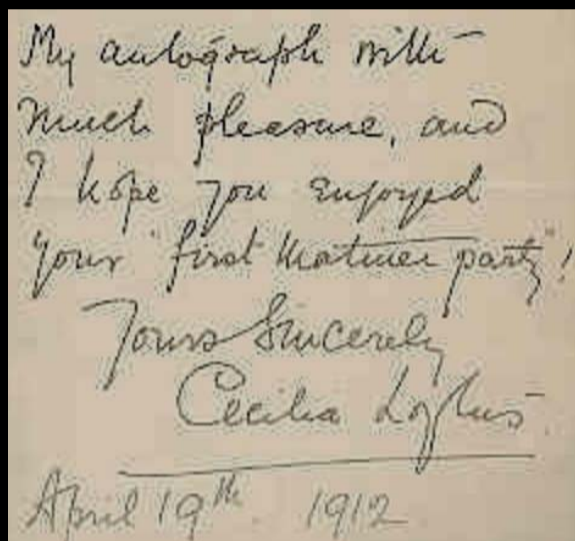 My autograph with
much pleasure, and
I hope you enjoyed
your "first matinee party"!
Yours Sincerely
Cecilia Loftus.
April 19th. 1912